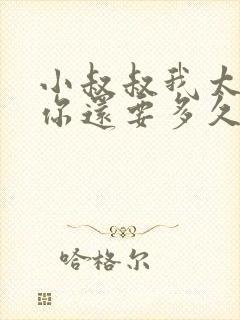 小叔叔我大
你還要多久
哈格尔